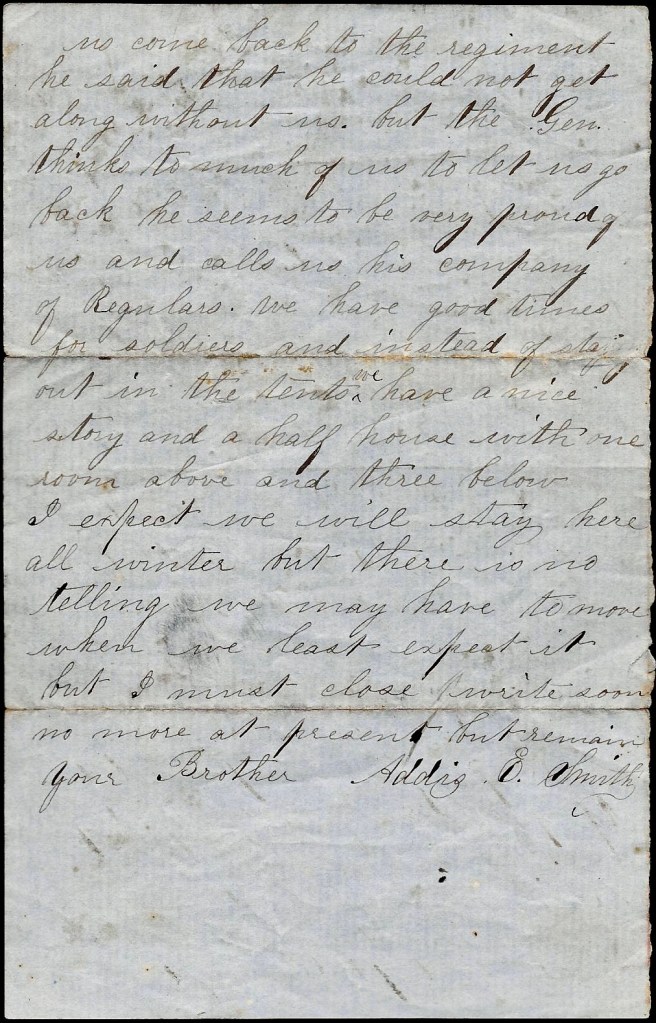 us come back to the regiment
he said that he could not get
along without us. but the Gen.
thinks to much of us to let us go
back he seems to be very proud of
us and calls us his company
of Regulars. we have good times
for soldiers and instead of
out in the tents we have a nice
story and a half house with one
room above and three below
I expect we will stay here
all winter but there is no
telling we may have to move
when we least expect it
but I must close write soon
no more at present but remain
your Brother Addis E. Smith